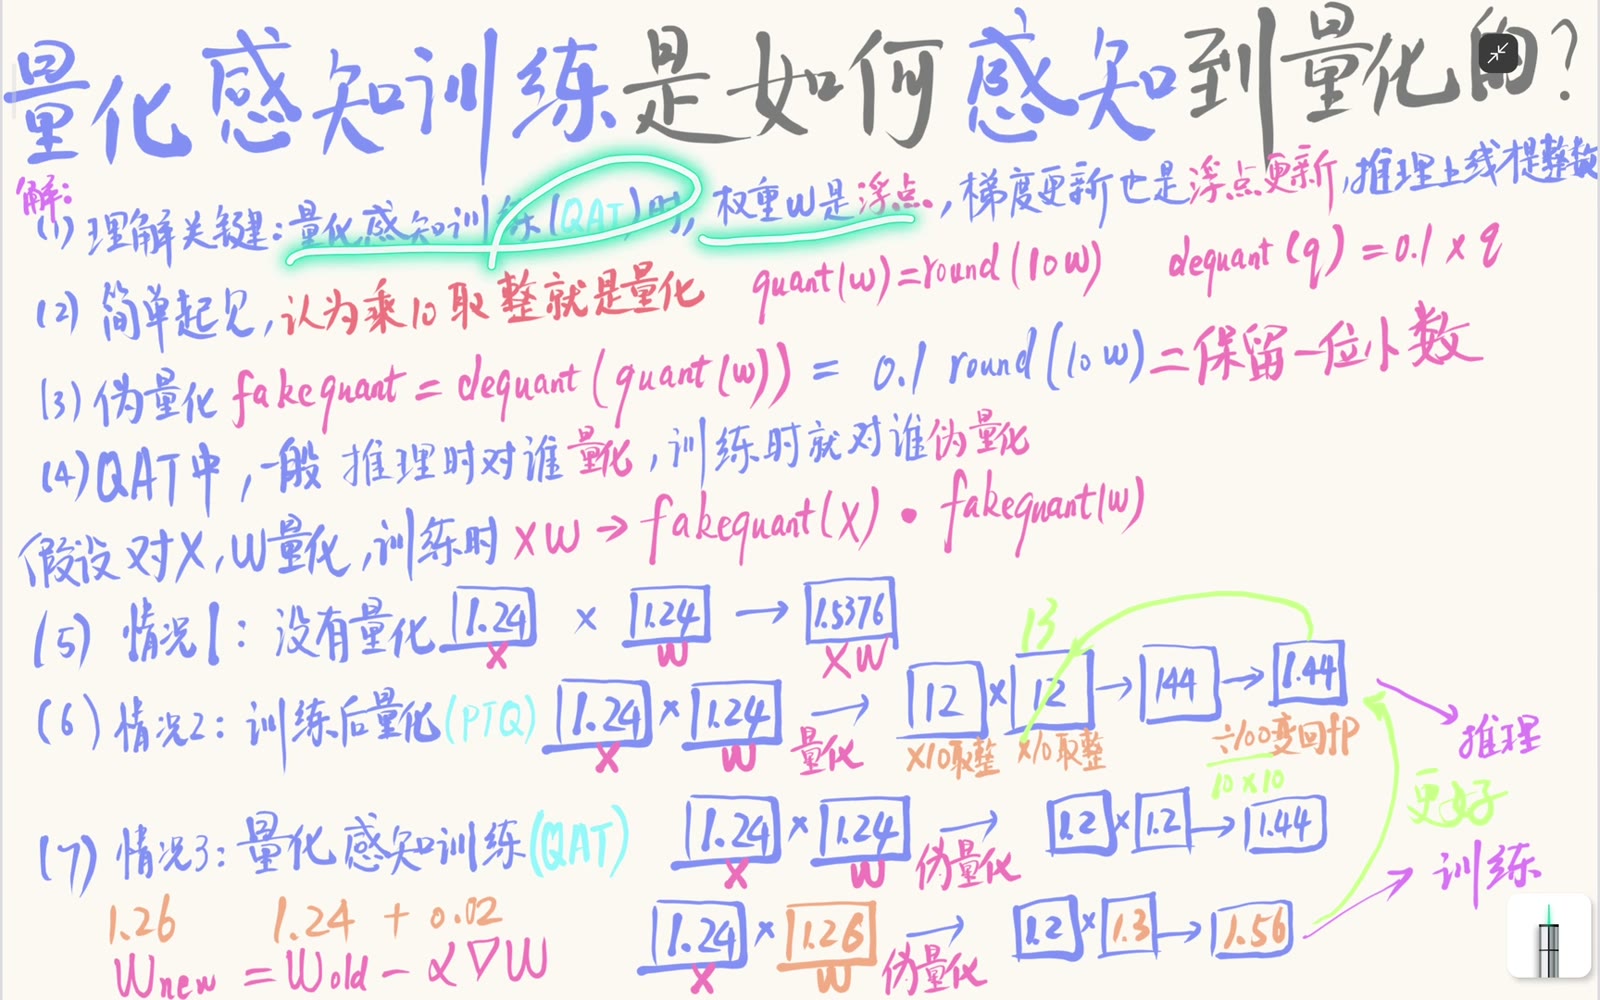 量化感知训练是如何感知到量化的?
解:
(1) 理解关键:量化感知训练(QAT)时,权重W是浮点,梯度更新也是浮点更新,推理上线才是整数
(2) 简单起见,认为乘10取整就是量化 quant(w)=round(10w) dequant(q)=0.1×q
(3) 伪量化 fakequant = dequant(quant(w)) = 0.1 round(10w)=保留一位小数
(4) QAT中,一般推理时对谁量化,训练时就对谁伪量化
假设对X,W量化,训练时 XW → fakequant(X) • fakequant(w)
(5) 情况1: 没有量化 1.24 × 1.24 → 1.5376
X W XW
13
(6) 情况2: 训练后量化(PTQ) 1.24 × 1.24 → 12 × 12 → 144 → 1.44
X W 量化 ×10取整 ×10取整 ÷100变回fP 推理
10×10
更好
(7) 情况3: 量化感知训练(QAT) 1.24 × 1.24 → 1.2 × 1.2 → 1.44
X W 伪量化 训练
1.26 1.24 + 0.02 1.24 × 1.26 → 1.2 × 1.3 → 1.56
Wnew = Wold - α∇W X W 伪量化